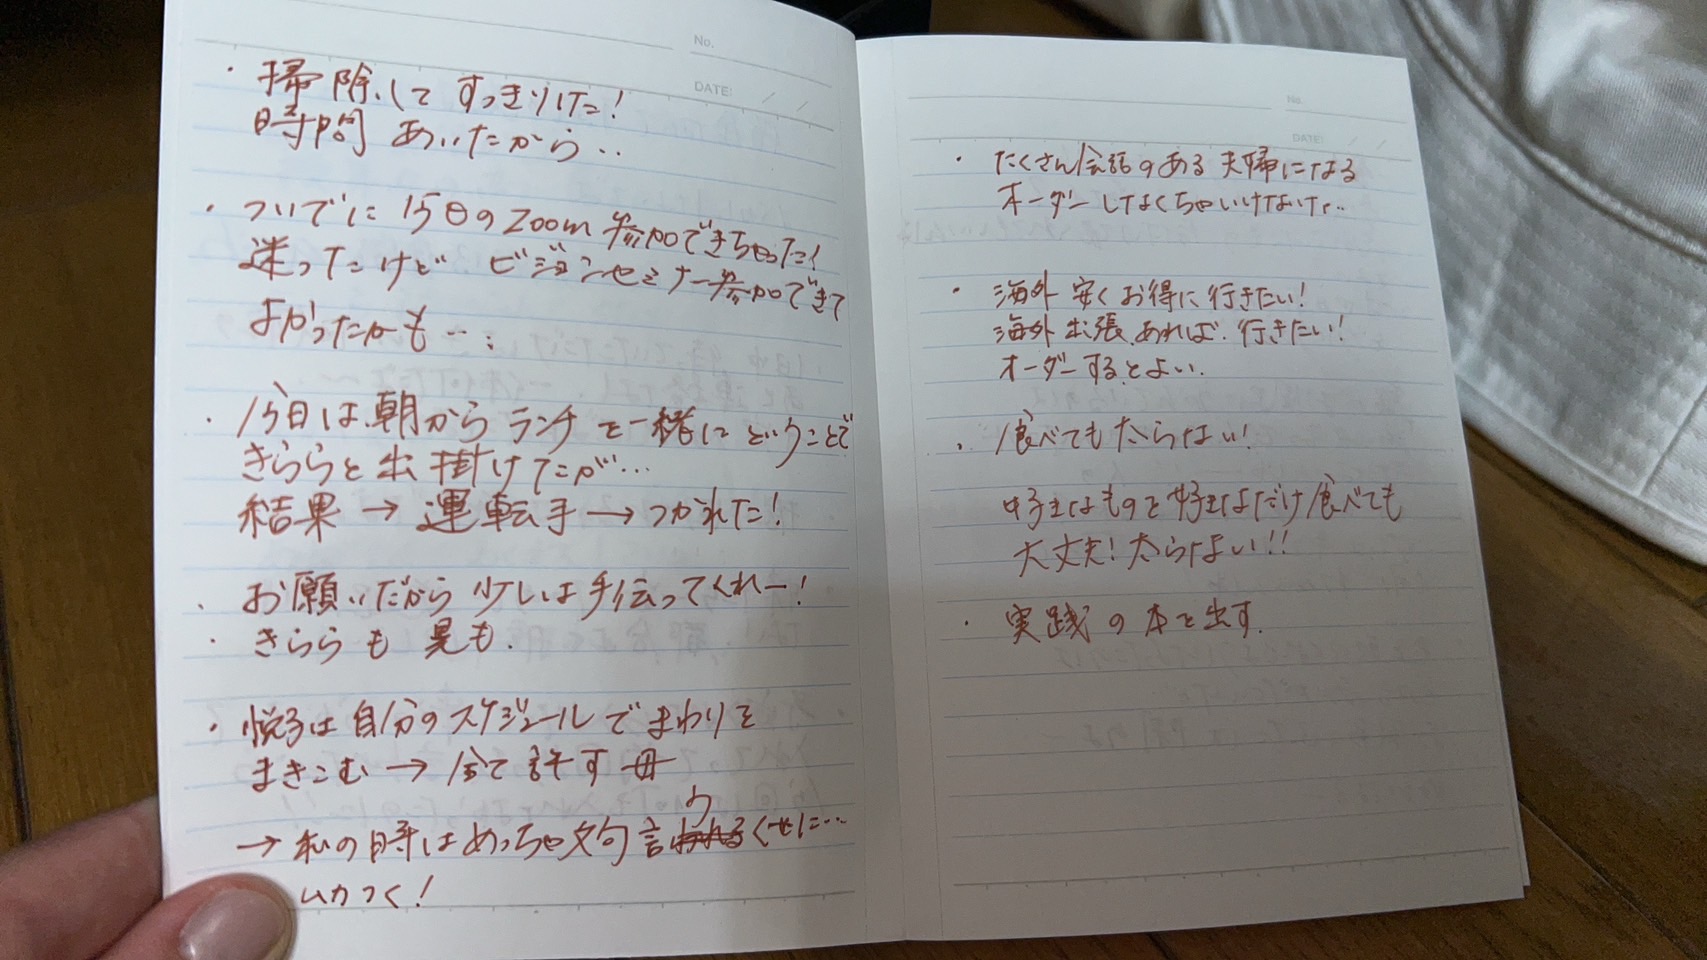 No.
DATE: / /
・掃除してすっきりした!
時間あいたから‥
・ついでに今日のZoom参加できちゃった!
迷ったけどビジョンセミナー参加できて
よかったかも…
・今日は朝からランチを一緒にということで
きららと出掛けてたが…
結果→運転手→つかれた!
・お願いだから少しは手伝ってくれー!
・きららも晃も.
・悦子は自分のスケジュールでまわりを
まきこむ→全て許す母
→私の時はめっちゃ文句言うくせに…
ムカつく!
No.
DATE: / /
・たくさん会話のある夫婦になる
オーダーしなくちゃいけないな‥
・海外安くお得に行きたい!
海外出張あれば行きたい!
オーダーするとよい.
・食べても太らない!
好きなものを好きなだけ食べても
大丈夫!太らない!!
・実践の本を出す.